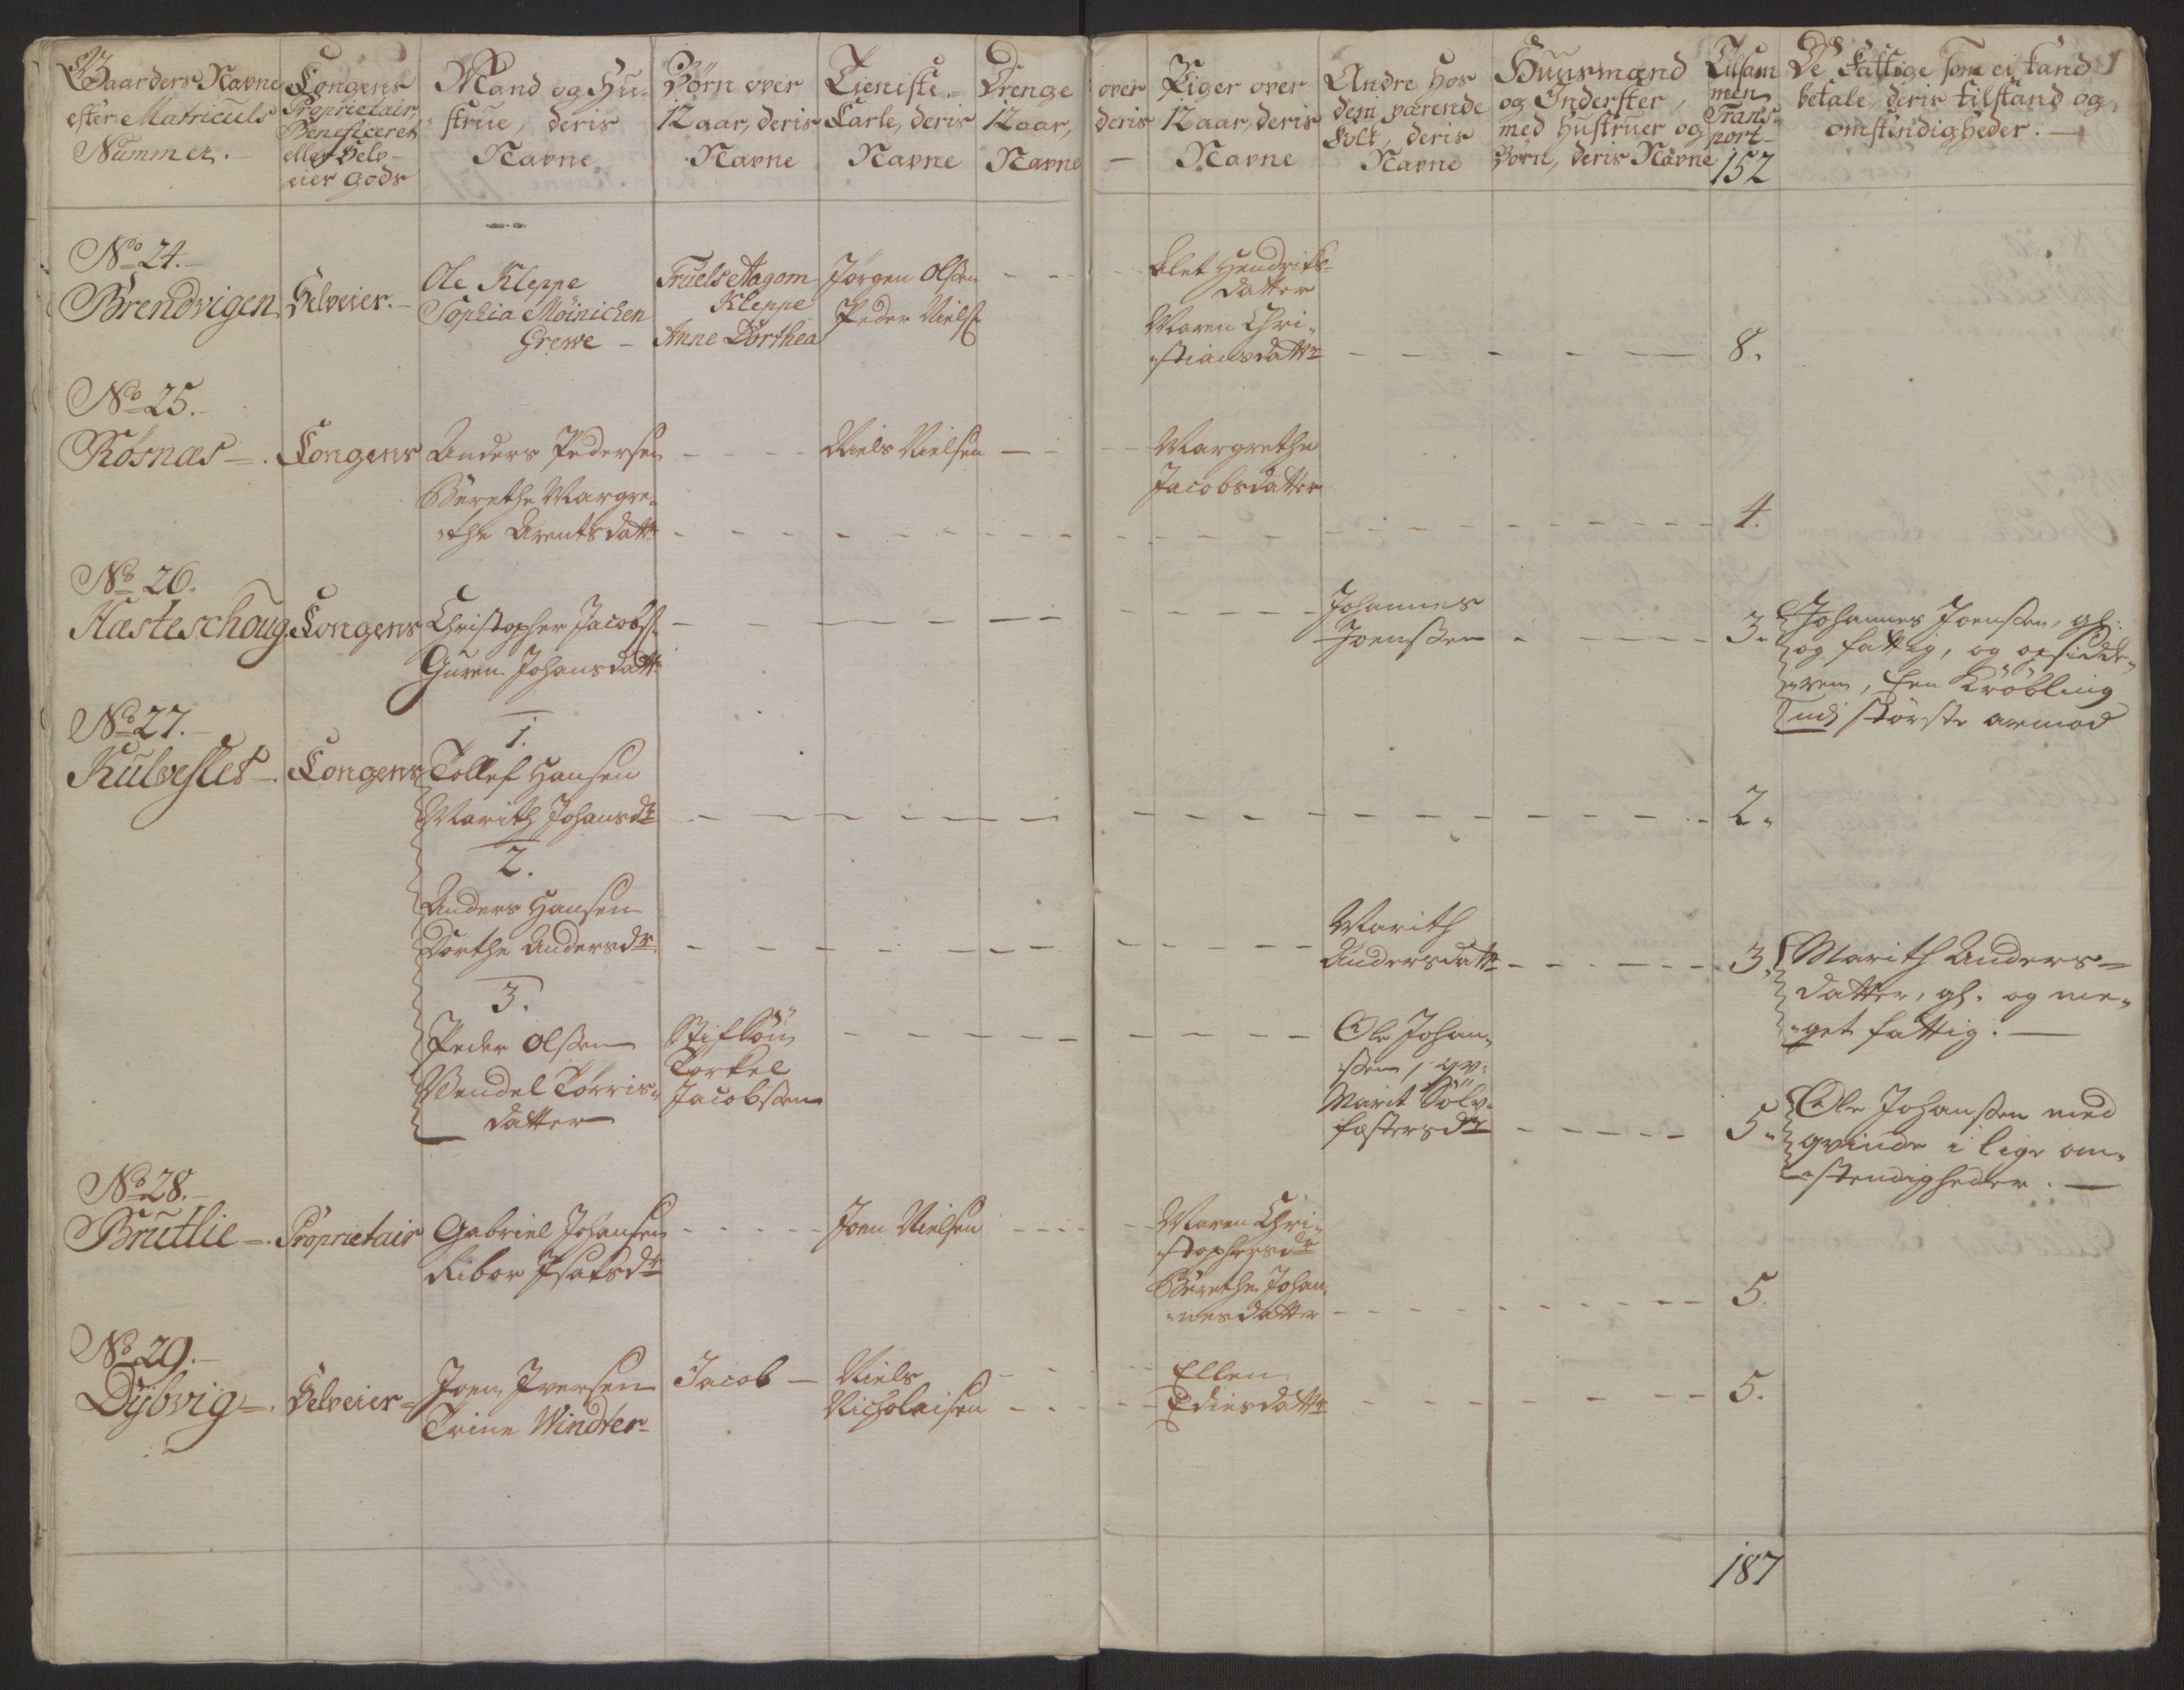 Gaarders Navne
efter Matriculs
Nummer.
Congens
Proprietair,
Beneficeret
eller Selv-
eier Gods
Mand og Hu-
strue, deris
Navne
Børn over
12 aar, deris
Navne
Tieniste-
Carle, deris
Navne
Drenge over
12 aar, deris
Navne —
Piger over
12 aar, deris
Navne
Andre hos
dem værende
Folk, deris
Navne
Huusmænd
og Inderster,
med Hustruer og
Børn, deris Navne
Tilsam
men
Trans-
port-
152
De Fattige som ei kand
betale, deris tilstand og
omstendigheder. —
No 24.
Brendvigen
Selveier. -
Ole Kleppe
Sophia Möinichen
Grewe -
Truels Aagom
Kleppe
Anne Dorthea
Jörgen Olsen
Peder Niels
Hendriks-
datter
Maren Chri-
stiansdattr
8.
No 25.
Rösnæs -.
Congens
Anders Pedersen
Berethe Margre-
the Arentsdattr
Niels Nielsen
Margrethe
Jacobsdatter
4.
No 26.
Hæsteschoug
Congens
Christopher Jacobs
Guren Johansdattr
Johannes
Joenssen
3.
Johannes Joenssen, gl:
og fattig, og opsidde-
ren, Een Kröbling
udi störste armod
No 27.
Kulveslet -.
Congens
1.
Tollef Hansen
Marith Johansdr
2.
2.
Anders Hansen
Dorthe Andersdr
Marith
Andersdattr
3.
Marith Anders-
datter, gl. og me-
get fattig. —
3.
Peder Olssen
Vendel Törris-
datter
Stifsön
Torkel
Jacobssen
Ole Johan-
ssen, qv:
Marit Sölv-
festersdr
5.
Ole Johanssen med
qvinde i lige om-
stendigheder. —
No 28.
Brutlie -.
Proprietair
Gabriel Johansen
Ribor Isaksdr
Joen Nielsen
Maren Chri-
stophersdr
Berethe Johan-
nesdatter
5.
No 29.
Dybvig -.
Selveier -
Joen Iversen
Trine Windter-
Jacob -
Niels
Nicholaisen
Ellen
Ediesdattr
5.
187